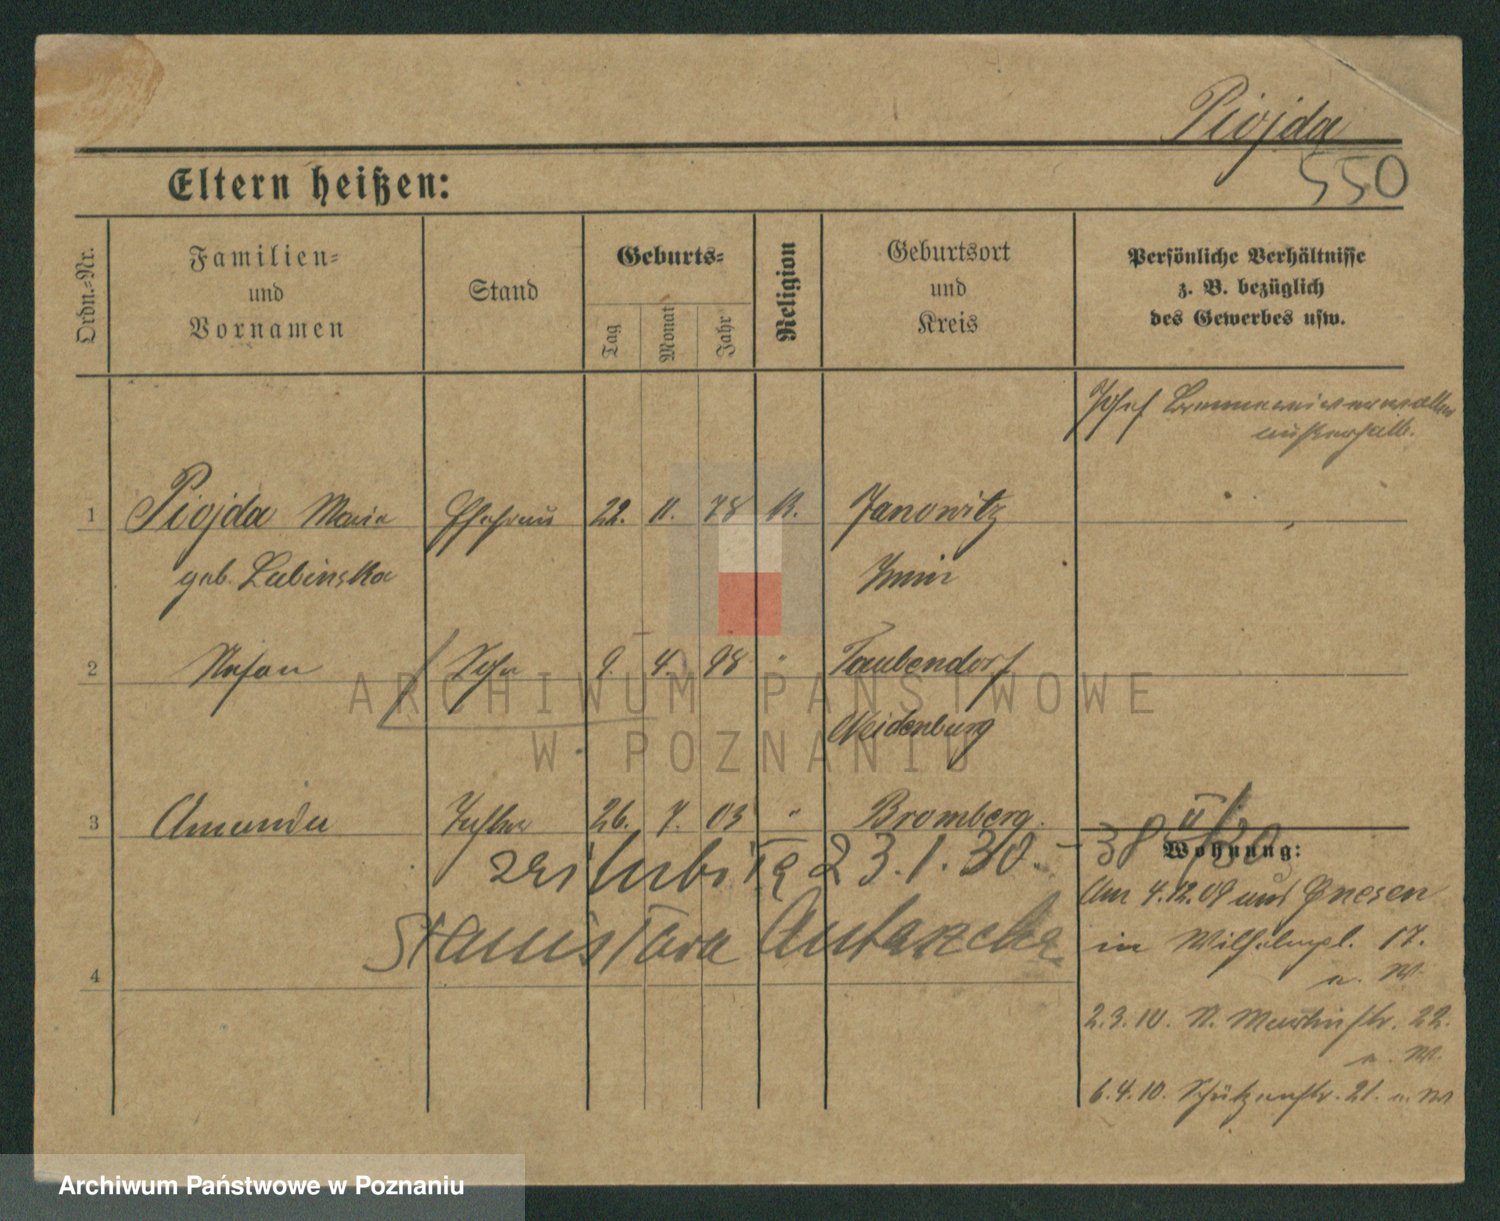 Piojda
550
Eltern heißen:
Ordn.-Nr.
Familien-
und
Vornamen
Stand
Geburts-
Tag
Monat
Jahr
Religion
Geburtsort
und
Kreis
Persönliche Verhältnisse
z. B. bezüglich
des Gewerbes usw.
Josef Brennereiverwalter
außerhalb.
1 Piojda Marie Ehefrau 22. 11. 78 K. Janowitz
geb. Lubinska Znin
2 Stefan Sohn 9. 4. 98 " Taubendorf
Neidenburg
3 Amanda Tochter 26. 7. 03 " Bromberg.
23.1.30.-38
Wohnung:
Stanisława
Am 4.12.09 aus Gnesen
in Wilhelmpl. 17.
n. W.
2.3.10. St. Martinstr. 22.
n. W.
6.4.10. Schützenstr. 21. n. W
4
ARCHIWUM PAŃSTWOWE
W POZNANIU
Archiwum Państwowe w Poznaniu